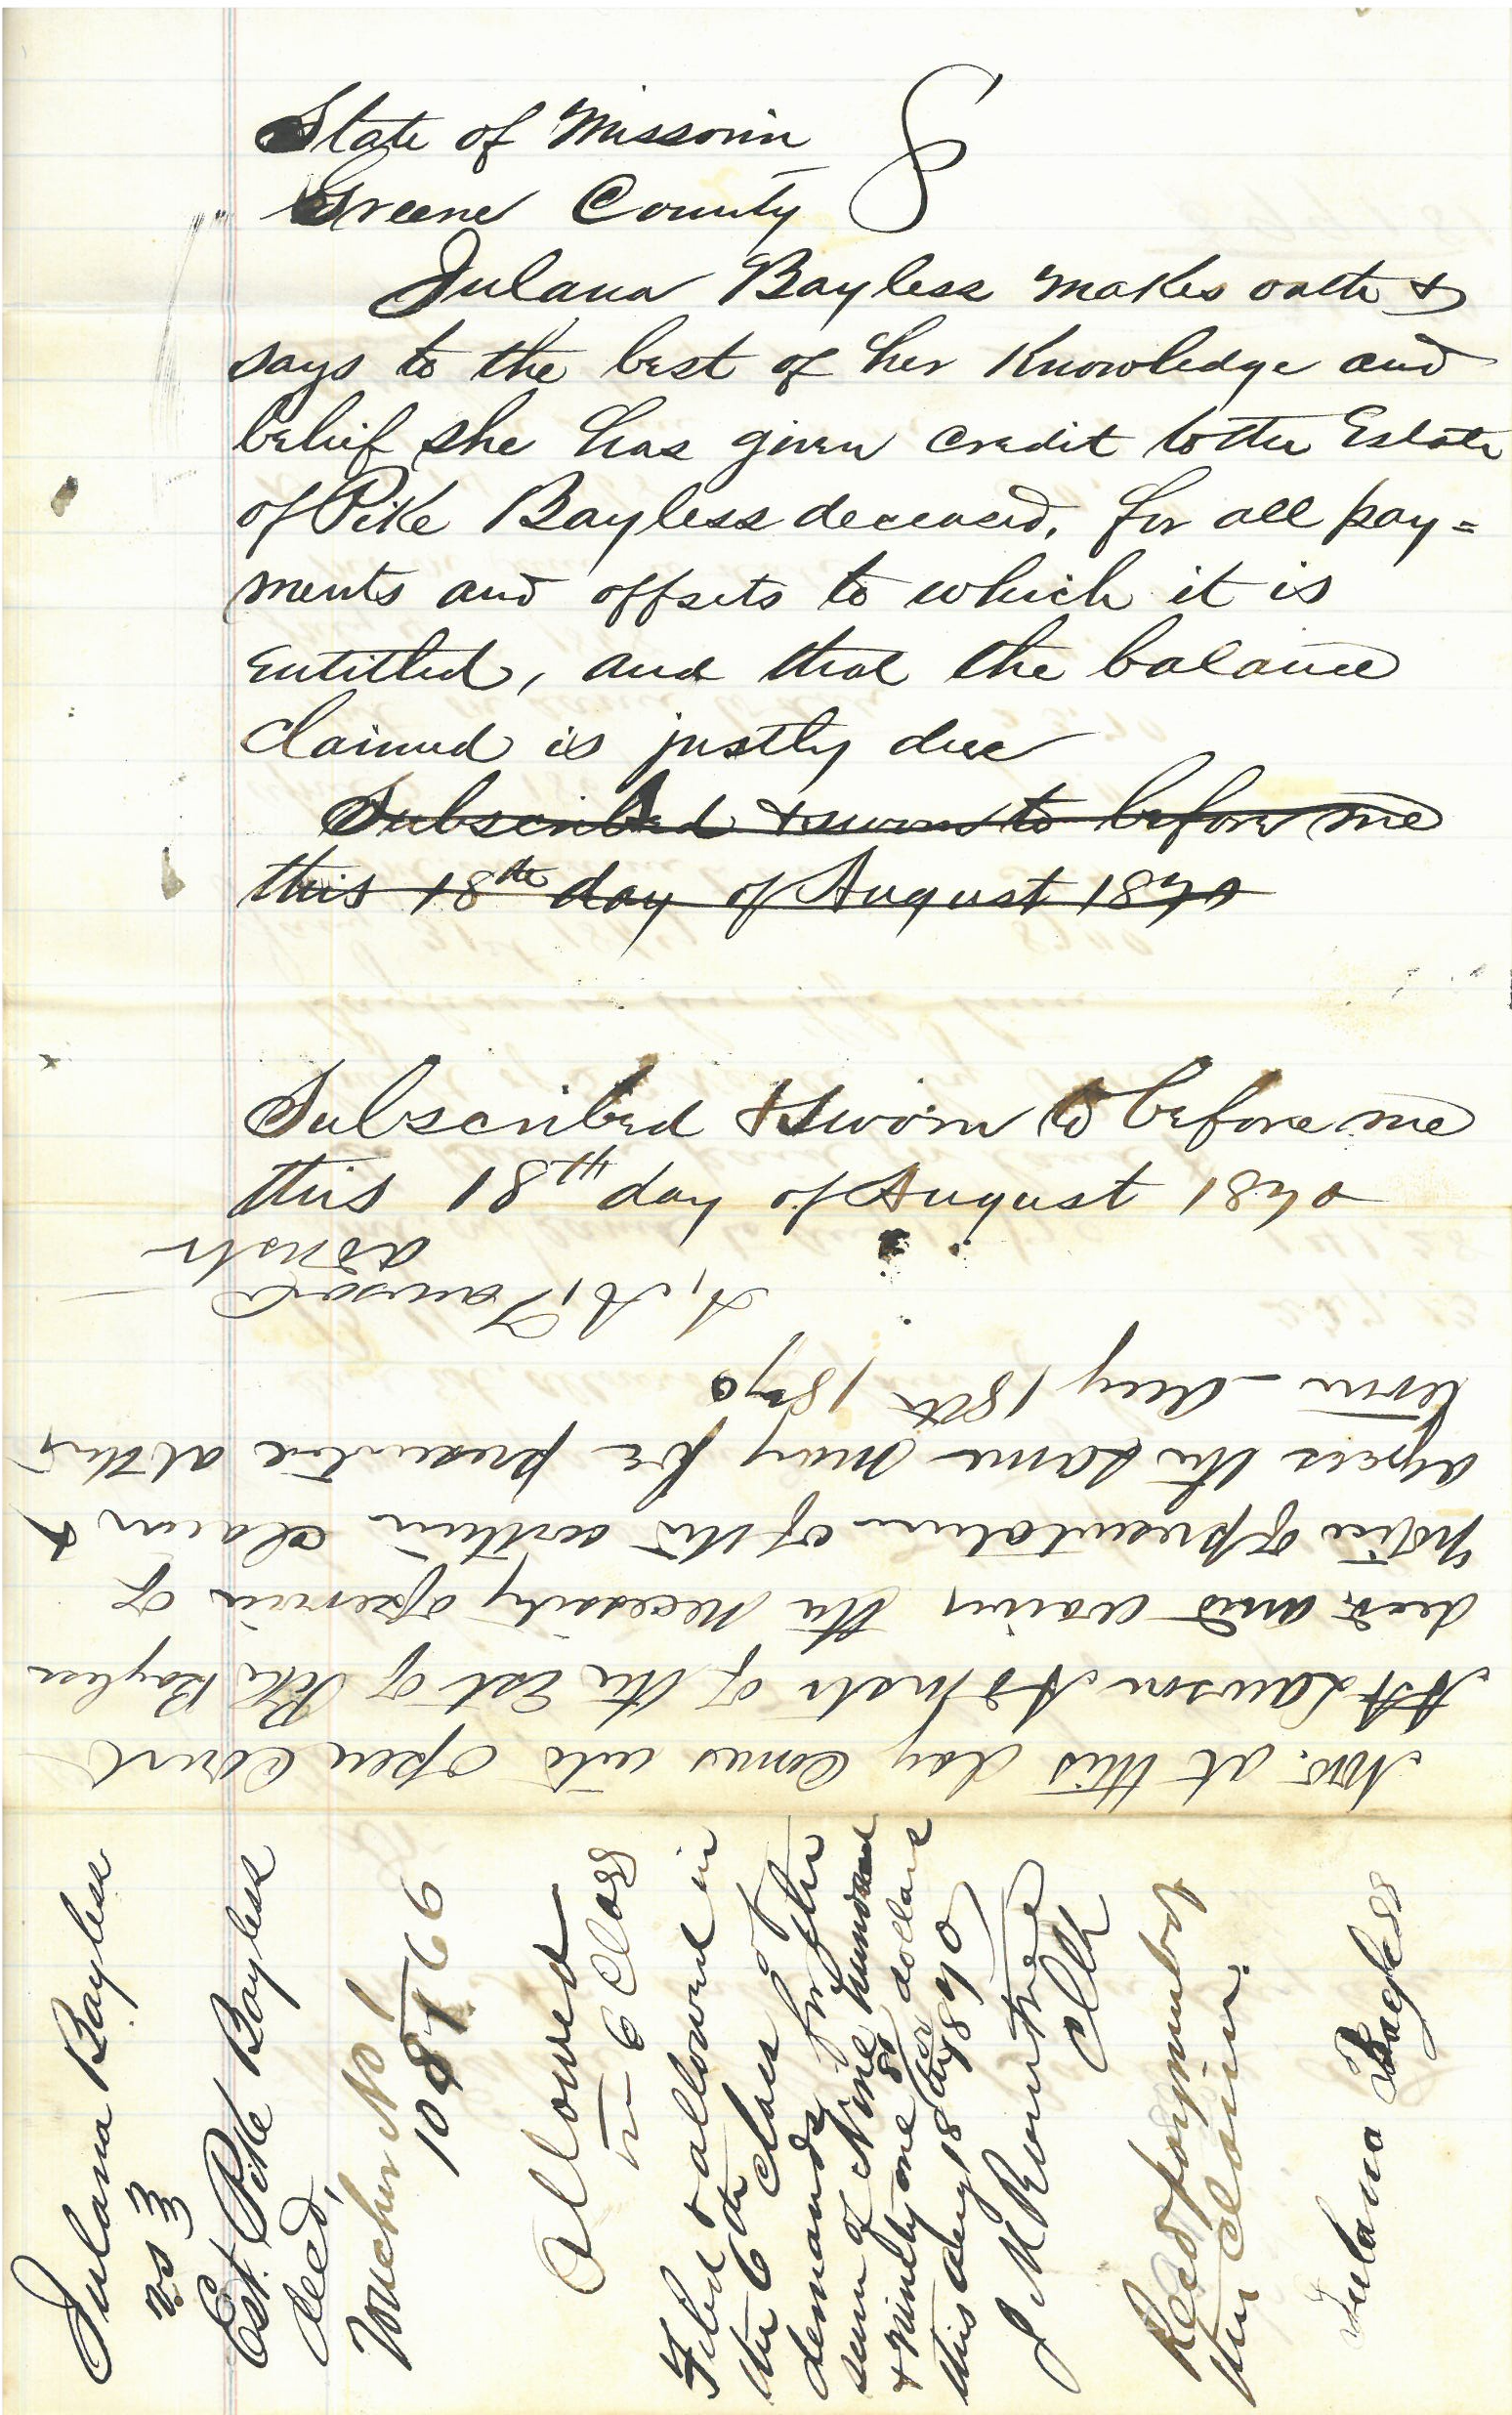 State of Missouri
Greene County
Julana Bayless makes oath &
says to the best of her Knowledge and
belief she has given credit to the Estate
of Pike Bayless deceased, for all pay=
ments and offsets to which it is
entitled, and that the balance
claimed is justly due
Subscribed & sworn to before me
this 18th day of August 1870
Subscribed & Sworn to before me
this 18th day of August 1870
Now at this day comes into open Court
A A Lawson Admstr of the Est of Pike Bayless
decd and waives the necessity of service of
notice of presentation of the within claim &
agrees the same may be presented at this
term - Aug 18th 1870
A, A, Lawson
admstr
Julana Bayless
vs
Est. Pike Bayless
decd,
Voucher No 1
Allowed
in 6 Class
Filed & allowed in
the 6th class of
demands for the
sum of Nine hundred
& Ninety one dollars
this Aug 18 1870
J M Rountree
Clk
Recd payment of
this claim.
Julana Bayless